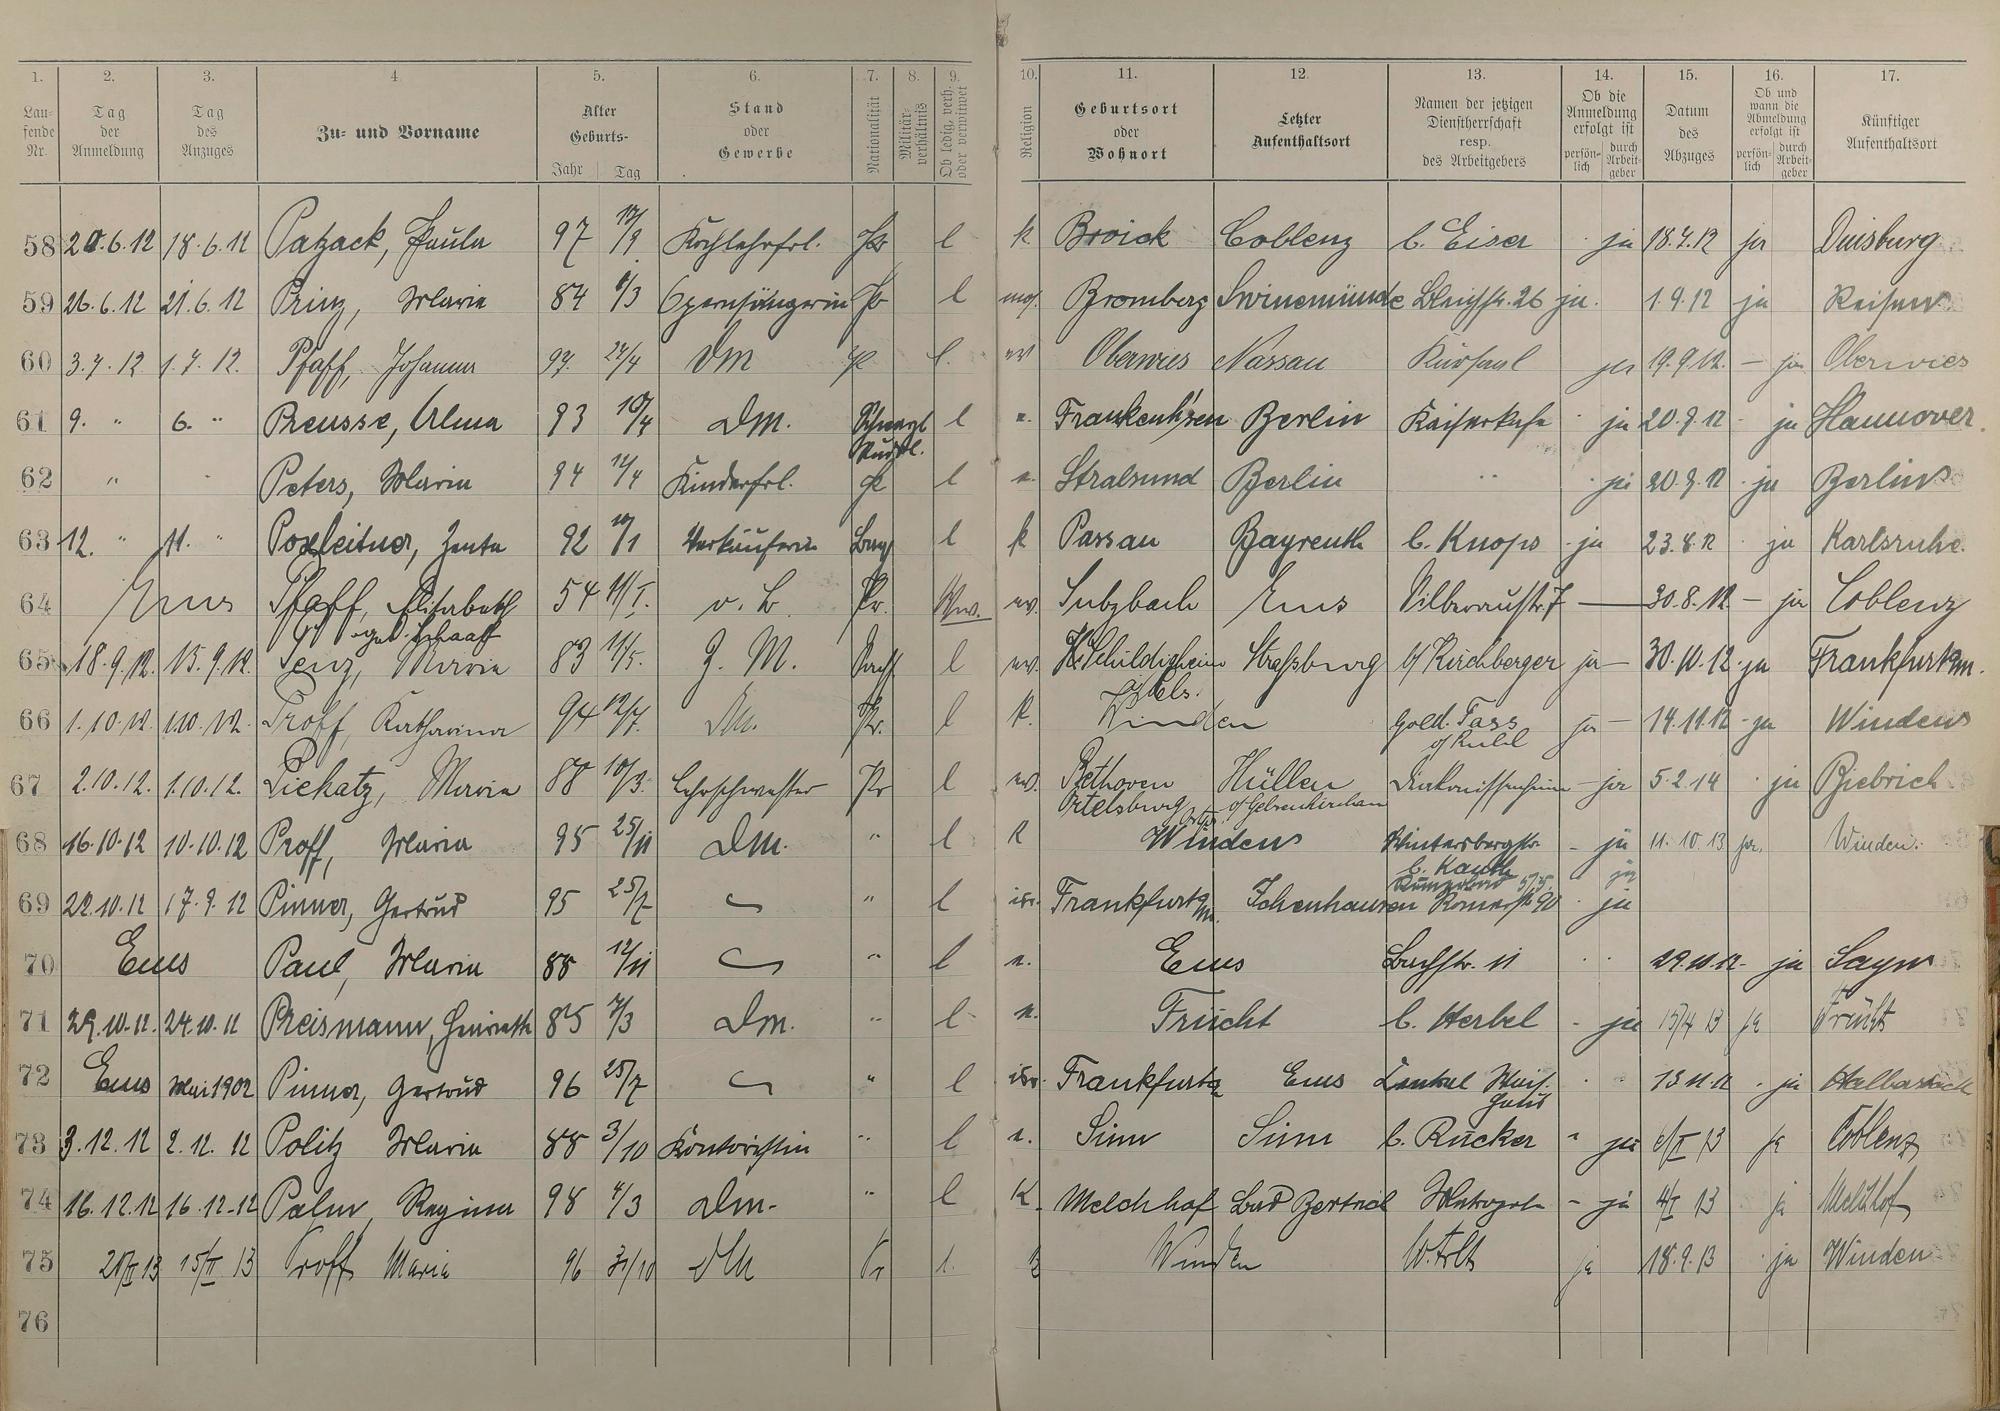 1. 2. 3. 4. 5. 6. 7. 8. 9. 10. 11. 12. 13. 14. 15. 16. 17.
Lau-fende Nr. Tag der Anmeldung Tag des Anzuges Zu- und Vorname Alter Geburts- Jahr Tag Stand oder Gewerbe Nationalität Militär-verhältnis Ob ledig, verh. oder verwitwet Religion Geburtsort oder Wohnort Letzter Aufenthaltsort Namen der jetzigen Dienstherrschaft resp. des Arbeitgebers Ob die Anmeldung erfolgt ist persön-lich durch Arbeit-geber Datum des Abzuges Ob und wann die Abmeldung erfolgt ist persön-lich durch Arbeit-geber Künftiger Aufenthaltsort
58 20.6.12 18.6.12 Patzack, Paula 97 Kochlehrfrl. l k Broick Coblenz b. Eiser ja 18.7.12 ja Duisburg
59 26.6.12 21.6.12 Prinz, Maria 84 6/3 Opernsängerin l mos. Bromberg Swinemünde Bleichstr. 26 ja. 1.9.12 ja Reisen
60 3.7.12 1.7.12. Pfaff, Johanna 97. 24/4 DM l. ev Oberwies Nassau Kursaal ja 19.9.12. — ja Oberwies
61 9. " 6. " Preusse, Alma 93 10/4 Dm. Schwarzb. Rudol. l e. Frankenh'sen Berlin ja 20.9.12 ja Hannover.
62 " Peters, Maria 94 12/4 Kinderfrl. l e. Stralsund Berlin " ja 20.9.12 ja Berlin
63 12. " 11. " Poxleitner, Zenta 92 10/1 Verkäuferin Bay l k Passau Bayreuth b. Knops ja 23.8.12 ja Karlsruhe.
64 Ems Pfaff, Elisabeth 54 11/I. o. B. Pr. Ww. ev. Sulzbach Ems Silberaustr. 7 — 30.8.12 — ja Coblenz
geb. Schaaff
65 18.9.12. 15.9.12. Penz, Maria 83 11/5. Z. M. l ev. Schildigheim Straßburg b/ Kirchberger ja — 30.10.12 ja Frankfurt a/m.
i/ Els.
66 1.10.12. 1.10.12. Proff, Katharina 94 12/7. Dm. Pr. l k. Winden Gold. Fass ja — 14.11.12 ja Winden
67 2.10.12. 1.10.12. Piekatz, Maria 88 10/3. Lehrschwester Pr l ev. Bethoven Hüllen Diakonissenheim — ja 5.2.14 ja Biebrich
Ortelsburg b/ Gelsenkirchen
68 16.10.12 10.10.12 Proff, Maria 95 25/11 Dm. " l k Winden Wintersbergstr. - ja 11.10.13 ja. Winden.
b. Kauth ja
69 22.10.12 17.9.12 Pinner, Gertrud 95 25/7 " l isr. Frankfurt a/m. Ichenhausen Römerstr. 90 ja
70 Ems Paul, Maria 88 12/11 " l e. Ems Bachstr. 11 29.10.12. ja Sayn
71 29.10.12. 24.10.12 Preismann, Henriette 85 7/3 Dm. " l e. Frücht b. Herbel - ja 15/4 13 ja Frücht
72 Ems Mai 1902 Pinner, Gertrud 96 25/7 " l isr. Frankfurt a Ems Zentral Wais. 13.11.12 ja Halberstadt
haus
73 3.12.12 2.12.12 Politz Maria 88 3/10 Kontoristin " l e. Sinn Sinn b. Rücker " ja 6/I 13 ja Coblenz
74 16.12.12 16.12.12 Palm, Regina 98 4/3 Dm. " l K. Melchhof Bad Bertrich - ja 4/I 13 ja Melchhof
75 20/II 13 15/II 13 Proff Maria 96 31/10 DM Pr l. k Winden W. Arlt ja 18.9.13 ja Winden
76